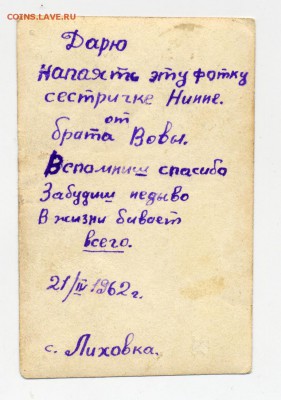 COINS.LAVE.RU
Дарю
напаять эту фотку
сестричке Нинне.
от
брата Вовы.
Вспомниш спасибо
Забудиш недыво
В жизни бивает
всего.
21/IV 1962 г.
с. Лиховка.